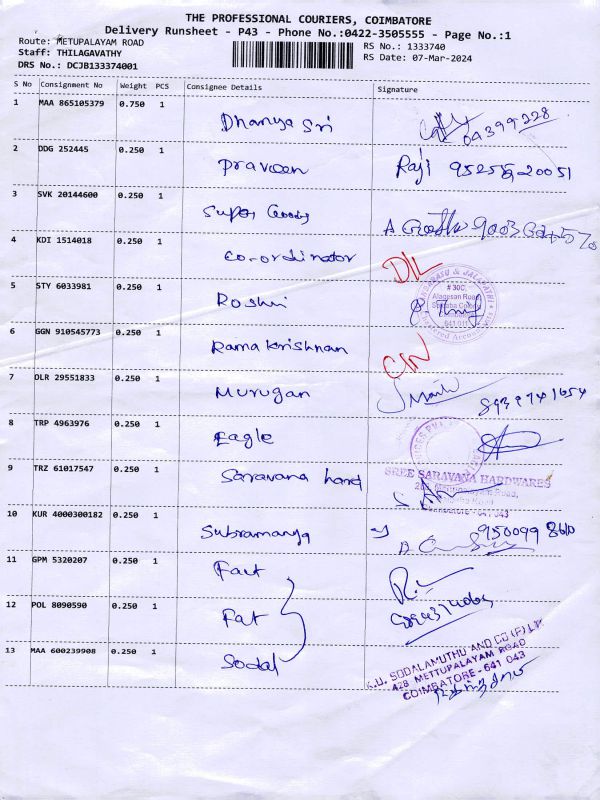 THE PROFESSIONAL COURIERS, COIMBATORE
Delivery Runsheet - P43 - Phone No.:0422-3505555 - Page No.:1
Route: METUPALAYAM ROAD
RS No.: 1333740
Staff: THILAGAVATHY
RS Date: 07-Mar-2024
DRS No.: DCJB133374001
S No Consignment No Weight PCS Consignee Details Signature
1 MAA 865105379 0.750 1 Dhanya Sri
2 DDG 252445 0.250 1 Praveen Raji
3 SVK 20144600 0.250 1 Super Goods
4 KDI 1514018 0.250 1 Co-ordinator D/L
5 STY 6033981 0.250 1 Roshni
# 30C,
Alagesan Road
641 011
6 GGN 910545773 0.250 1 Rama Krishnan
7 DLR 29551833 0.250 1 Murugan
8 TRP 4963976 0.250 1 Eagle
9 TRZ 61017547 0.250 1 Saravana hard
SREE SARAVANA HARDWARES
10 KUR 4000300182 0.250 1 Subramanya
11 GPM 5320207 0.250 1 Fact
12 POL 8090590 0.250 1 Fat
13 MAA 600239908 0.250 1 Sodal
K.U. SODALAMUTHU AND CO (P) LTD
428 METTUPALAYAM ROAD
COIMBATORE-641 043